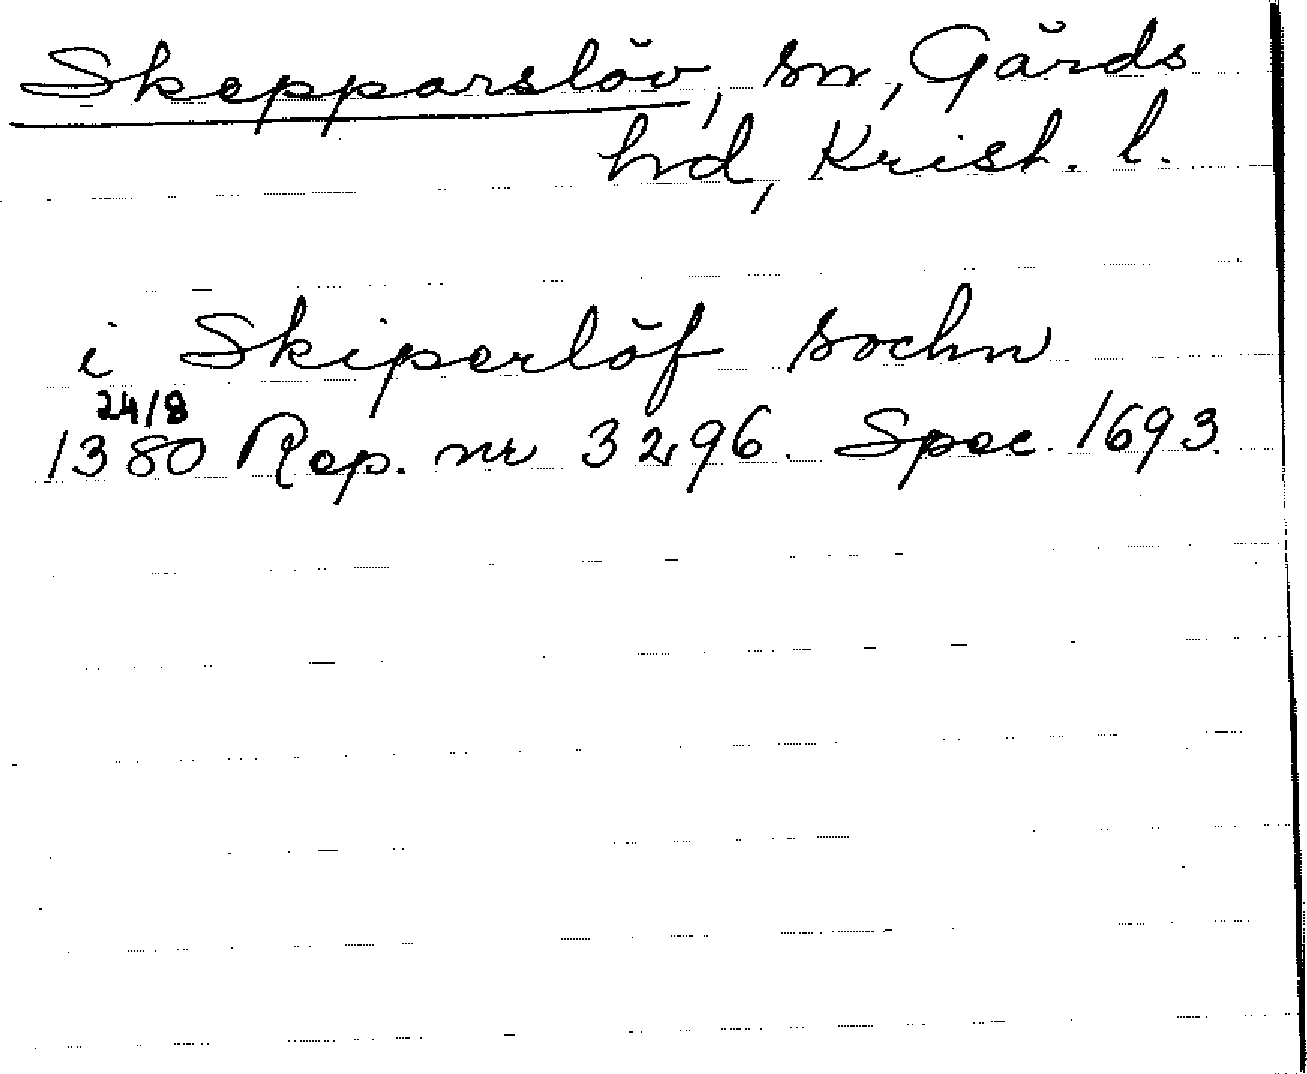 Skepparslöv, sn, Gärds
hd, Krist. l.
i Skiperlöf sochn
24/8
1380 Rep. nr 3296. Spec. 1693.